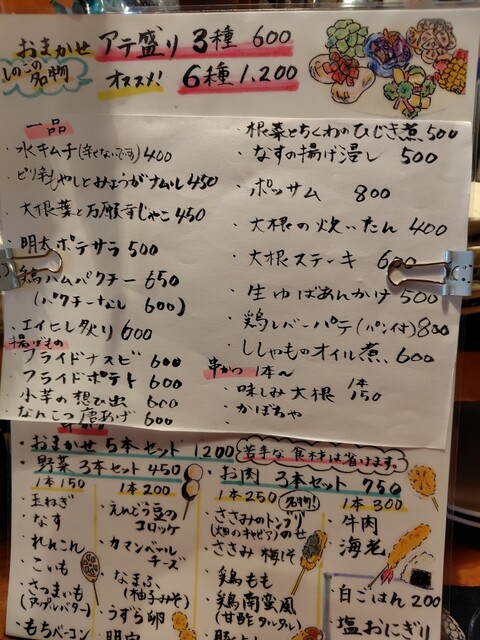 おまかせ アテ盛り 3種 600
しのらの名物
オススメ! 6種 1,200
一品
・水キムチ(辛くないです) 400
・ピリ辛もやしとみょうがナムル 450
・大根葉と万願寺じゃこ 450
・明太ポテサラ 500
・鶏ハムパクチー 650
(パクチーなし 600)
・エイヒレ炙り 600
揚げもの
・フライドナスビ 600
・フライドポテト 600
・小芋の想ひ出 600
・なんこつ唐あげ 600
・根菜とちくわのひじき煮 500
・なすの揚げ浸し 500
・ポッサム 800
・大根の炊いたん 400
・大根ステーキ 600
・生ゆばあんかけ 500
・鶏レバーパテ(パン付) 800
・ししゃものオイル煮 600
串かつ 1本〜
・味しみ大根 1本 150
・かぼちゃ
・おまかせ 5本セット 1200
苦手な食材は省けます。
・野菜 3本セット 450
1本150
・玉ねぎ
・なす
・れんこん
・こいも
・さつまいも
(アップルバター)
・もちベーコン
1本200
・えんどう豆の
コロッケ
・カマンベール
チーズ
・なまふ
(柚子みそ)
・うずら卵
・お肉 3本セット 750
1本250 名物!
・ささみのトンブリ
(畑のキャビア)のせ
・ささみ 梅しそ
・鶏もも
・鶏南蛮風
(甘酢タルタル)
1本300
・牛肉
・海老
・白ごはん 200
・塩おにぎり